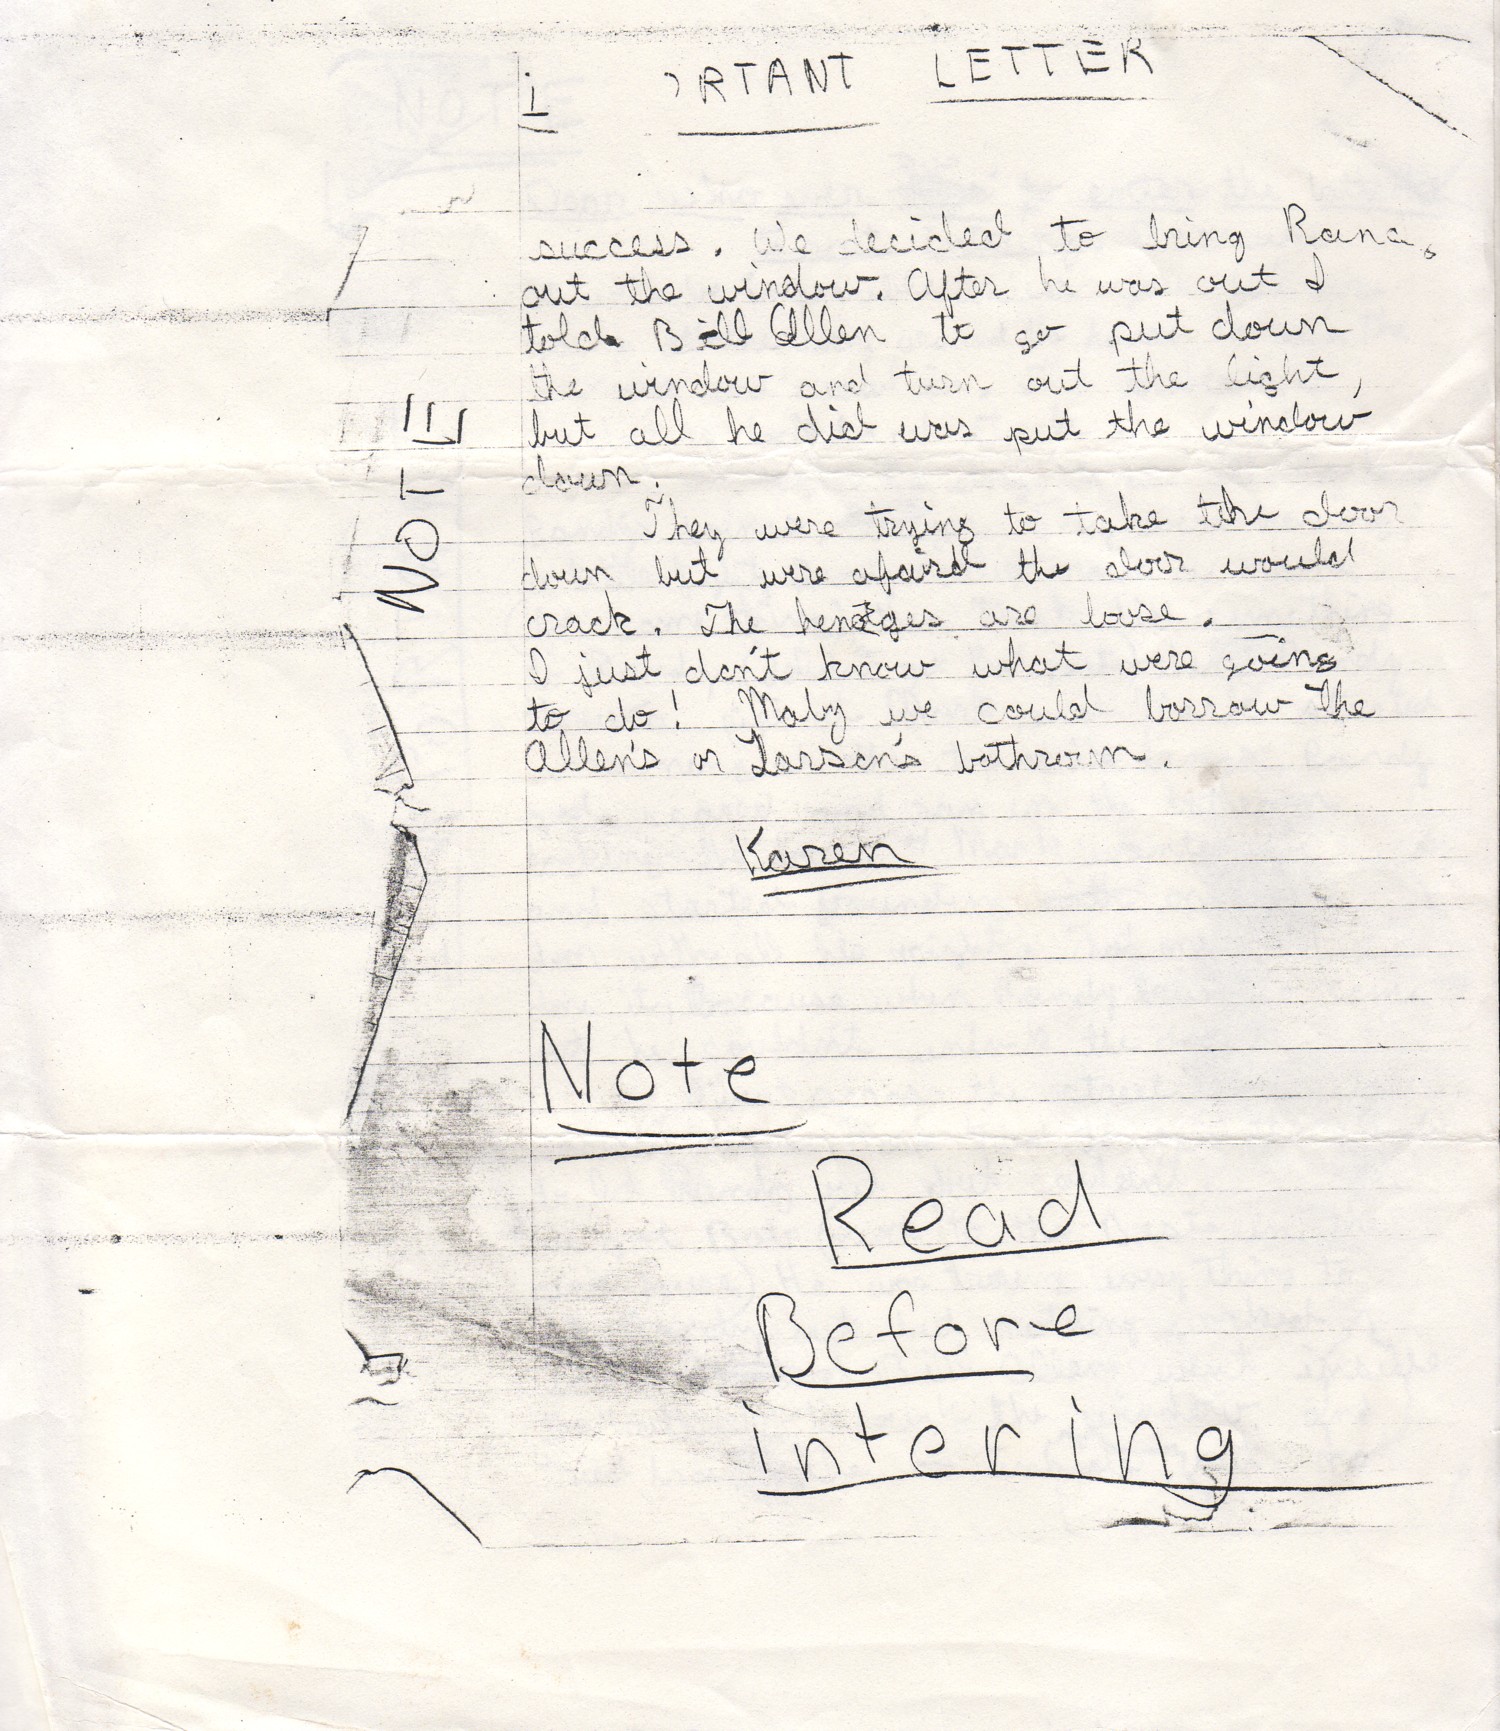 ORTANT LETTER
success. We decided to bring Rana
out the window. After he was out I
told Bill Allen to go put down
the window and turn out the light,
but all he did was put the window
down.
They were trying to take the door
down but were afaird the door would
crack. The henges are loose.
I just don't know what were going
to do! Maby we could borrow the
Allen's or Larson's bathroom.
Karen
NOTE
Note
Read
Before
intering